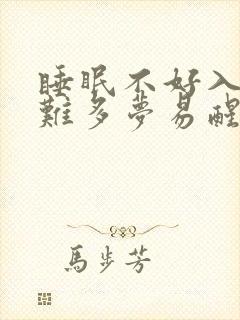 睡眠不好入
難多夢易醒
馬步芳